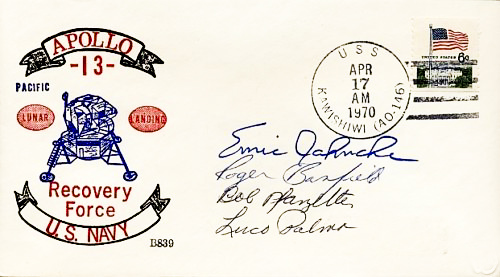 APOLLO
-13-
PACIFIC
LUNAR LANDING
Recovery
Force
U.S. NAVY
B839
USS
APR
17
AM
1970
KAWISHIWI (AO.146)
UNITED STATES 6c
Ernie Jahncke
Roger Banfield
Bob
Luco Palma